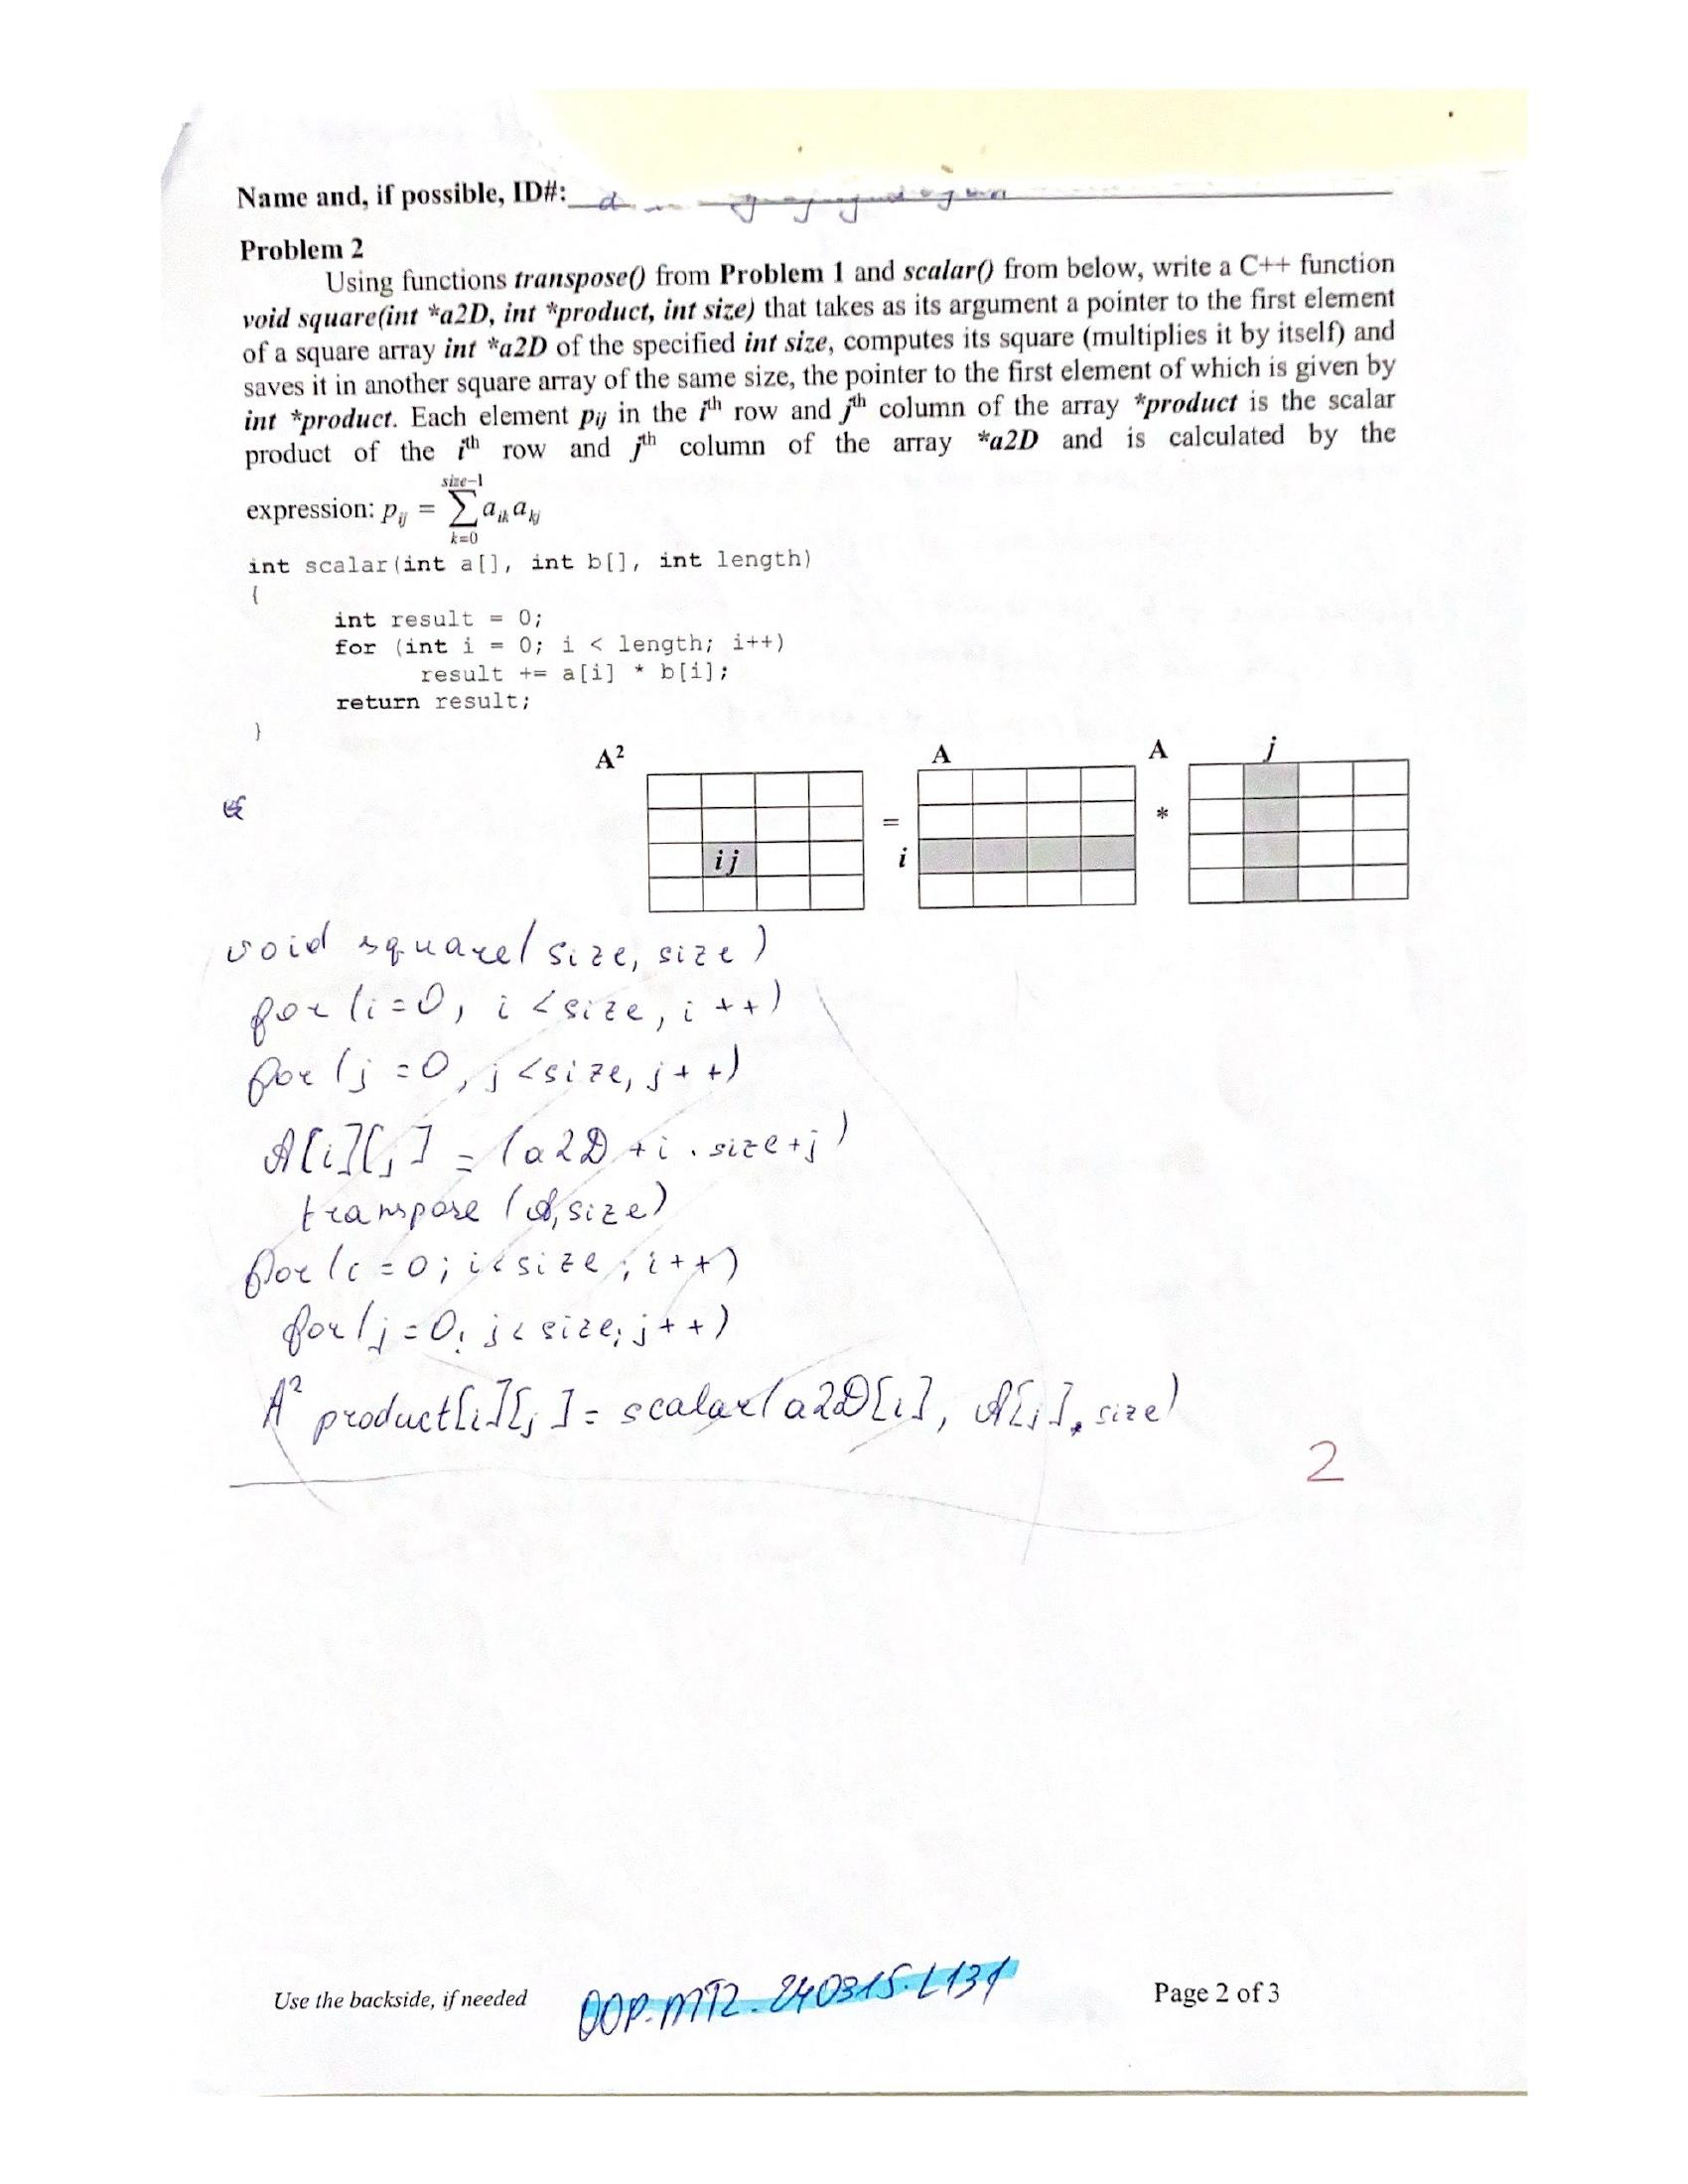 Name and, if possible, ID#:
Problem 2
Using functions transpose() from Problem 1 and scalar() from below, write a C++ function
void square(int *a2D, int *product, int size) that takes as its argument a pointer to the first element
of a square array int *a2D of the specified int size, computes its square (multiplies it by itself) and
saves it in another square array of the same size, the pointer to the first element of which is given by
int *product. Each element pij in the ith row and jth column of the array *product is the scalar
product of the ith row and jth column of the array *a2D and is calculated by the
expression: pij = size-1 ∑ k=0 aik akj
int scalar(int a[], int b[], int length)
{
int result = 0;
for (int i = 0; i < length; i++)
result += a[i] * b[i];
return result;
}
A² A A j
= *
i j i
void square(size, size)
for (i=0, i<size, i++)
for (j=0, j<size, j++)
A[i][j] = (a2D + i . size+j)
transpose (A, size)
for (i=0; i<size; i++)
for (j=0; j<size; j++)
A² product[i][j] = scalar(a2D[i], A[j], size)
2
Use the backside, if needed OOP.MT2.240315.L131 Page 2 of 3